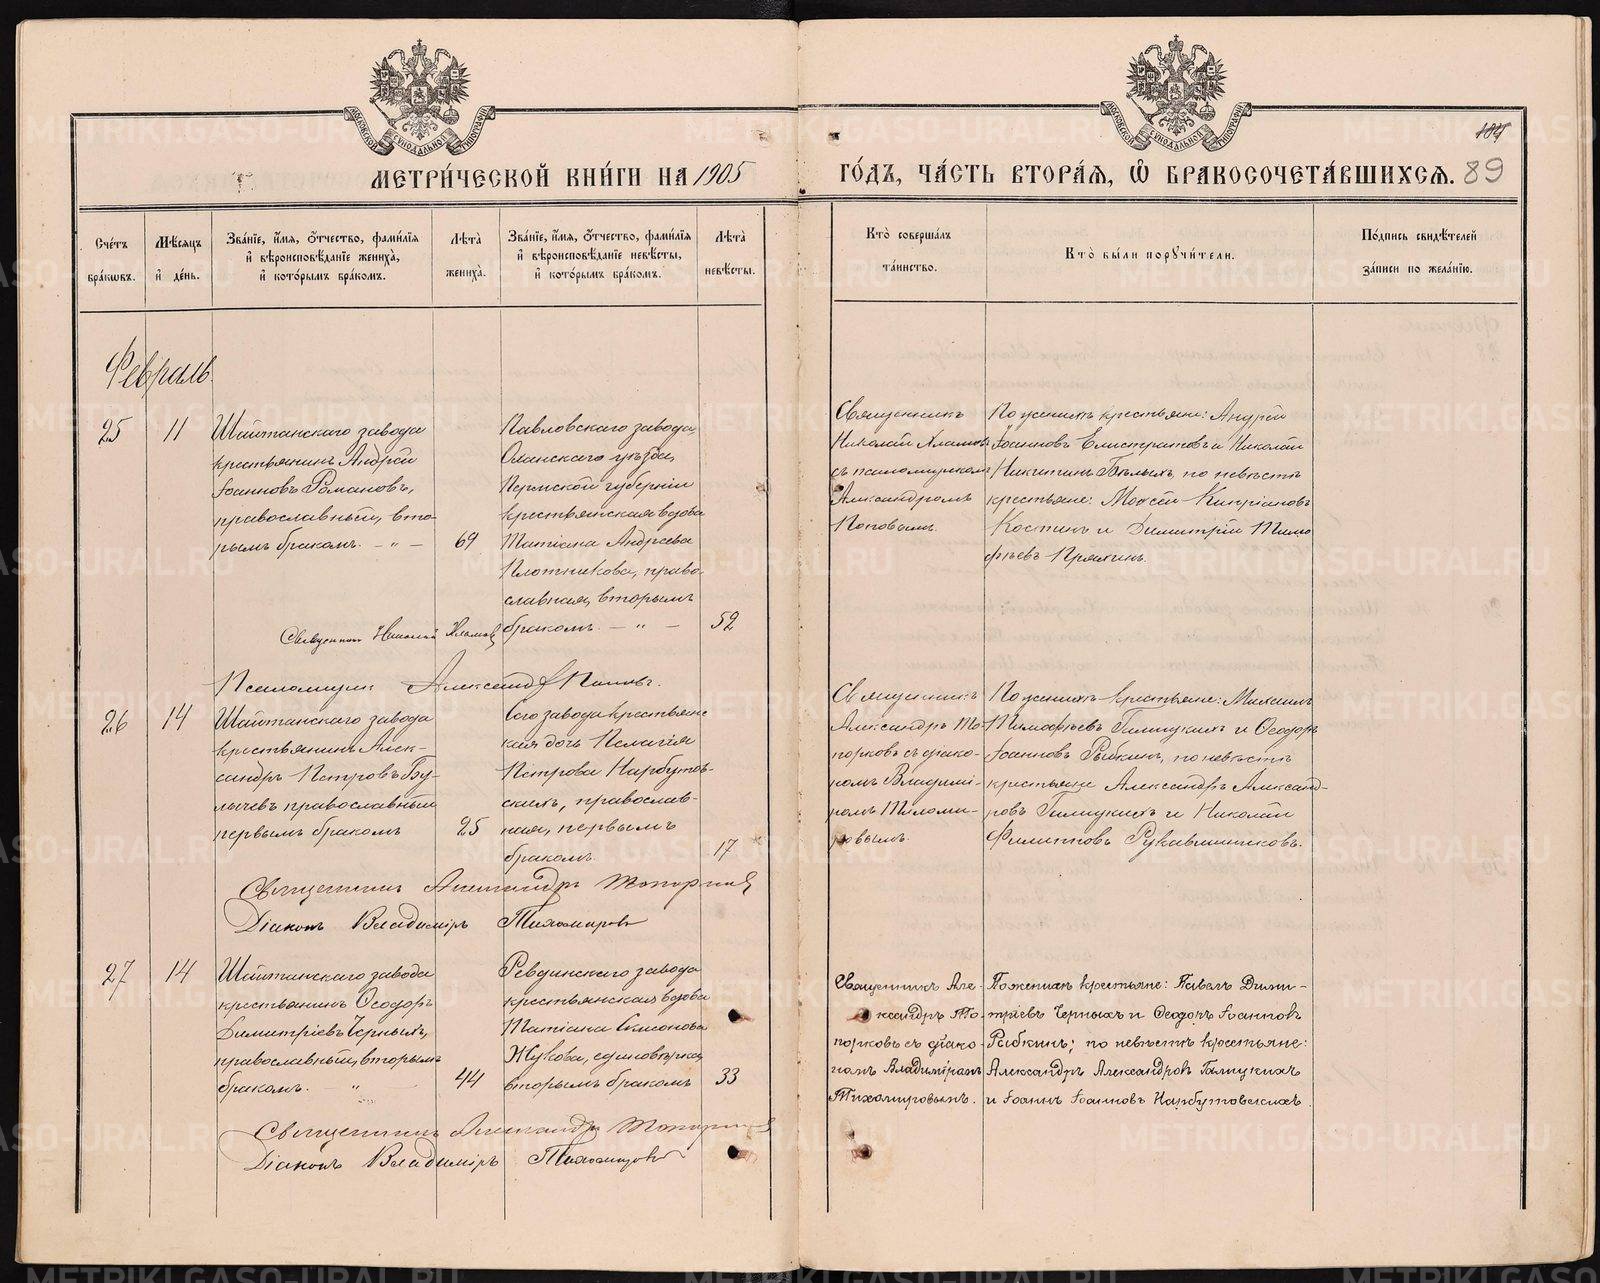 МОСКОВСКОЙ СѴНОДАЛЬНОЙ ТИПОГРАФІИ
МОСКОВСКОЙ СѴНОДАЛЬНОЙ ТИПОГРАФІИ
МЕТРИ́ЧЕСКОЙ КНИ́ГИ НА 1905
ГО́ДЪ, ЧА́СТЬ ВТОРА́Я, Ѡ҆ БРАКОСОЧЕТА́ВШИХСѦ. 89
Сче́тъ бра́кѡвъ.
Мѣ́сяцъ и҆ де́нь.
Зва́нїе, и҆́мя, ѻ҆́тчество, фами́лїя и҆ вѣроисповѣ́данїе жениха̀, и҆ кото́рымъ бра́комъ.
Лѣ́та жениха̀.
Зва́нїе, и҆́мя, ѻ҆́тчество, фами́лїя и҆ вѣроисповѣ́данїе невѣ́сты, и҆ кото́рымъ бра́комъ.
Лѣ́та невѣ́сты.
Кто̀ соверша́лъ та́инство.
Кто̀ бы́ли порꙋчи́тели.
По́дпись свидѣ́телей за́писи по жела́нїю.
Февраль.
25
11
Шайтанскаго завода
крестьянинъ Андрей
Іоанновъ Романовъ,
православный, вто-
рымъ бракомъ. — " —
69
Павловскаго завода,
Оханскаго уѣзда,
Пермской губерніи
крестьянская вдова
Татіана Андреева
Плотникова, право-
славная, вторымъ
бракомъ. — " —
52
Священникъ
Николай Хламовъ
съ псаломщикомъ
Александромъ
Поповымъ.
По женихѣ крестьяне: Андрей
Іоанновъ Елистратовъ и Николай
Никитинъ Бѣлыхъ, по невѣстѣ
крестьяне: Моисей Кипріановъ
Костинъ и Димитрій Тимо
фѣевъ Пряхинъ.
Священник Николай Хламовъ
Псаломщик Александр Поповъ.
26
14
Шайтанскаго завода
крестьянинъ Алек-
сандръ Петровъ Бу-
лычевъ православный
первымъ бракомъ
25
Сего завода крестьянс
кая дочь Пелагія
Петрова Нарбутов-
скихъ, православ-
ная, первымъ
бракомъ.
17
Священникъ
Александръ То-
порковъ съ діако-
номъ Владимі-
ромъ Тихоми-
ровымъ.
По женихѣ крестьяне: Михаилъ
Тимофѣевъ Галицкихъ и Ѳеодоръ
Іоанновъ Рыбкинъ, по невѣстѣ
крестьяне Александръ Александ-
ровъ Галицкихъ и Николай
Филипповъ Рукавишниковъ.
Священникъ Александръ Топорковъ
Діаконъ Владиміръ Тихомировъ
27
14
Шайтанскаго завода
крестьянинъ Ѳеодоръ
Димитріевъ Черныхъ,
православный, вторымъ
бракомъ. — " —
44
Ревдинскаго завода
крестьянская вдова
Татіана Симонова
Жукова, единовѣрка,
вторымъ бракомъ
33
Священникъ Але-
ксандръ То-
порковъ съ діако-
номъ Владиміромъ
Тихомировымъ.
По женихѣ крестьяне: Павелъ Дими-
тріевъ Черныхъ и Ѳеодоръ Іоанновъ
Рыбкинъ; по невѣстѣ крестьяне:
Александръ Александровъ Галицкихъ
и Іоаннъ Іоанновъ Нарбутовскихъ.
Священникъ Александръ Топорковъ
Діаконъ Владиміръ Тихомировъ
METRIKI.GASO-URAL.RU